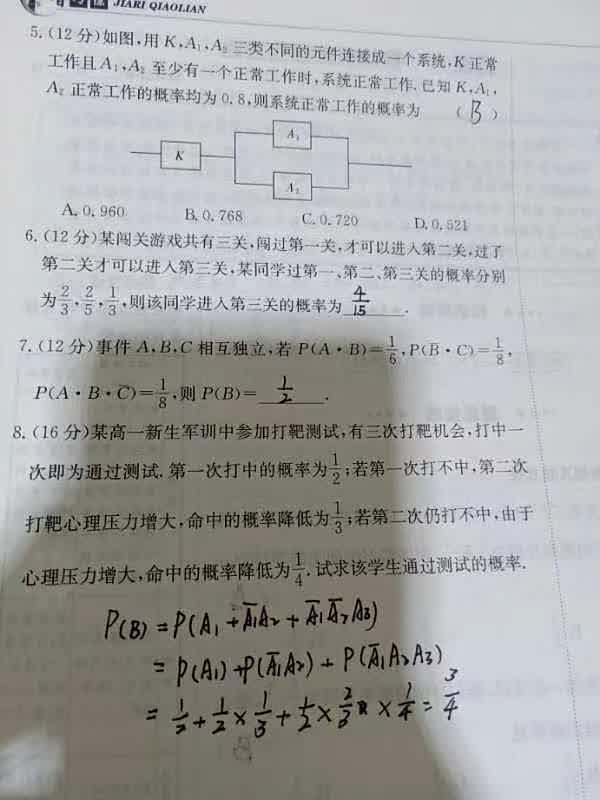 JIARI QIAOLIAN
5.(12分)如图,用K,A₁,A₂三类不同的元件连接成一个系统,K正常
工作且A₁,A₂至少有一个正常工作时,系统正常工作.已知K,A₁,
A₂正常工作的概率均为0.8,则系统正常工作的概率为 (B)
A₁
K
A₂
A.0.960 B.0.768 C.0.720 D.0.521
6.(12分)某闯关游戏共有三关,闯过第一关,才可以进入第二关,过了
第二关才可以进入第三关,某同学过第一、第二、第三关的概率分别
为2/3,2/5,1/3,则该同学进入第三关的概率为 4/15 .
7.(12分)事件A,B,C相互独立,若P(A·B)=1/6,P(B̄·C)=1/8,
P(A·B·C̄)=1/8,则P(B)= 1/2 .
8.(16分)某高一新生军训中参加打靶测试,有三次打靶机会,打中一
次即为通过测试.第一次打中的概率为1/2;若第一次打不中,第二次
打靶心理压力增大,命中的概率降低为1/3;若第二次仍打不中,由于
心理压力增大,命中的概率降低为1/4.试求该学生通过测试的概率.
P(B)=P(A₁+Ā₁A₂+Ā₁Ā₂A₃)
=P(A₁)+P(Ā₁A₂)+P(Ā₁A₂A₃)
=1/2+1/2×1/3+1/2×2/3×1/4=3/4